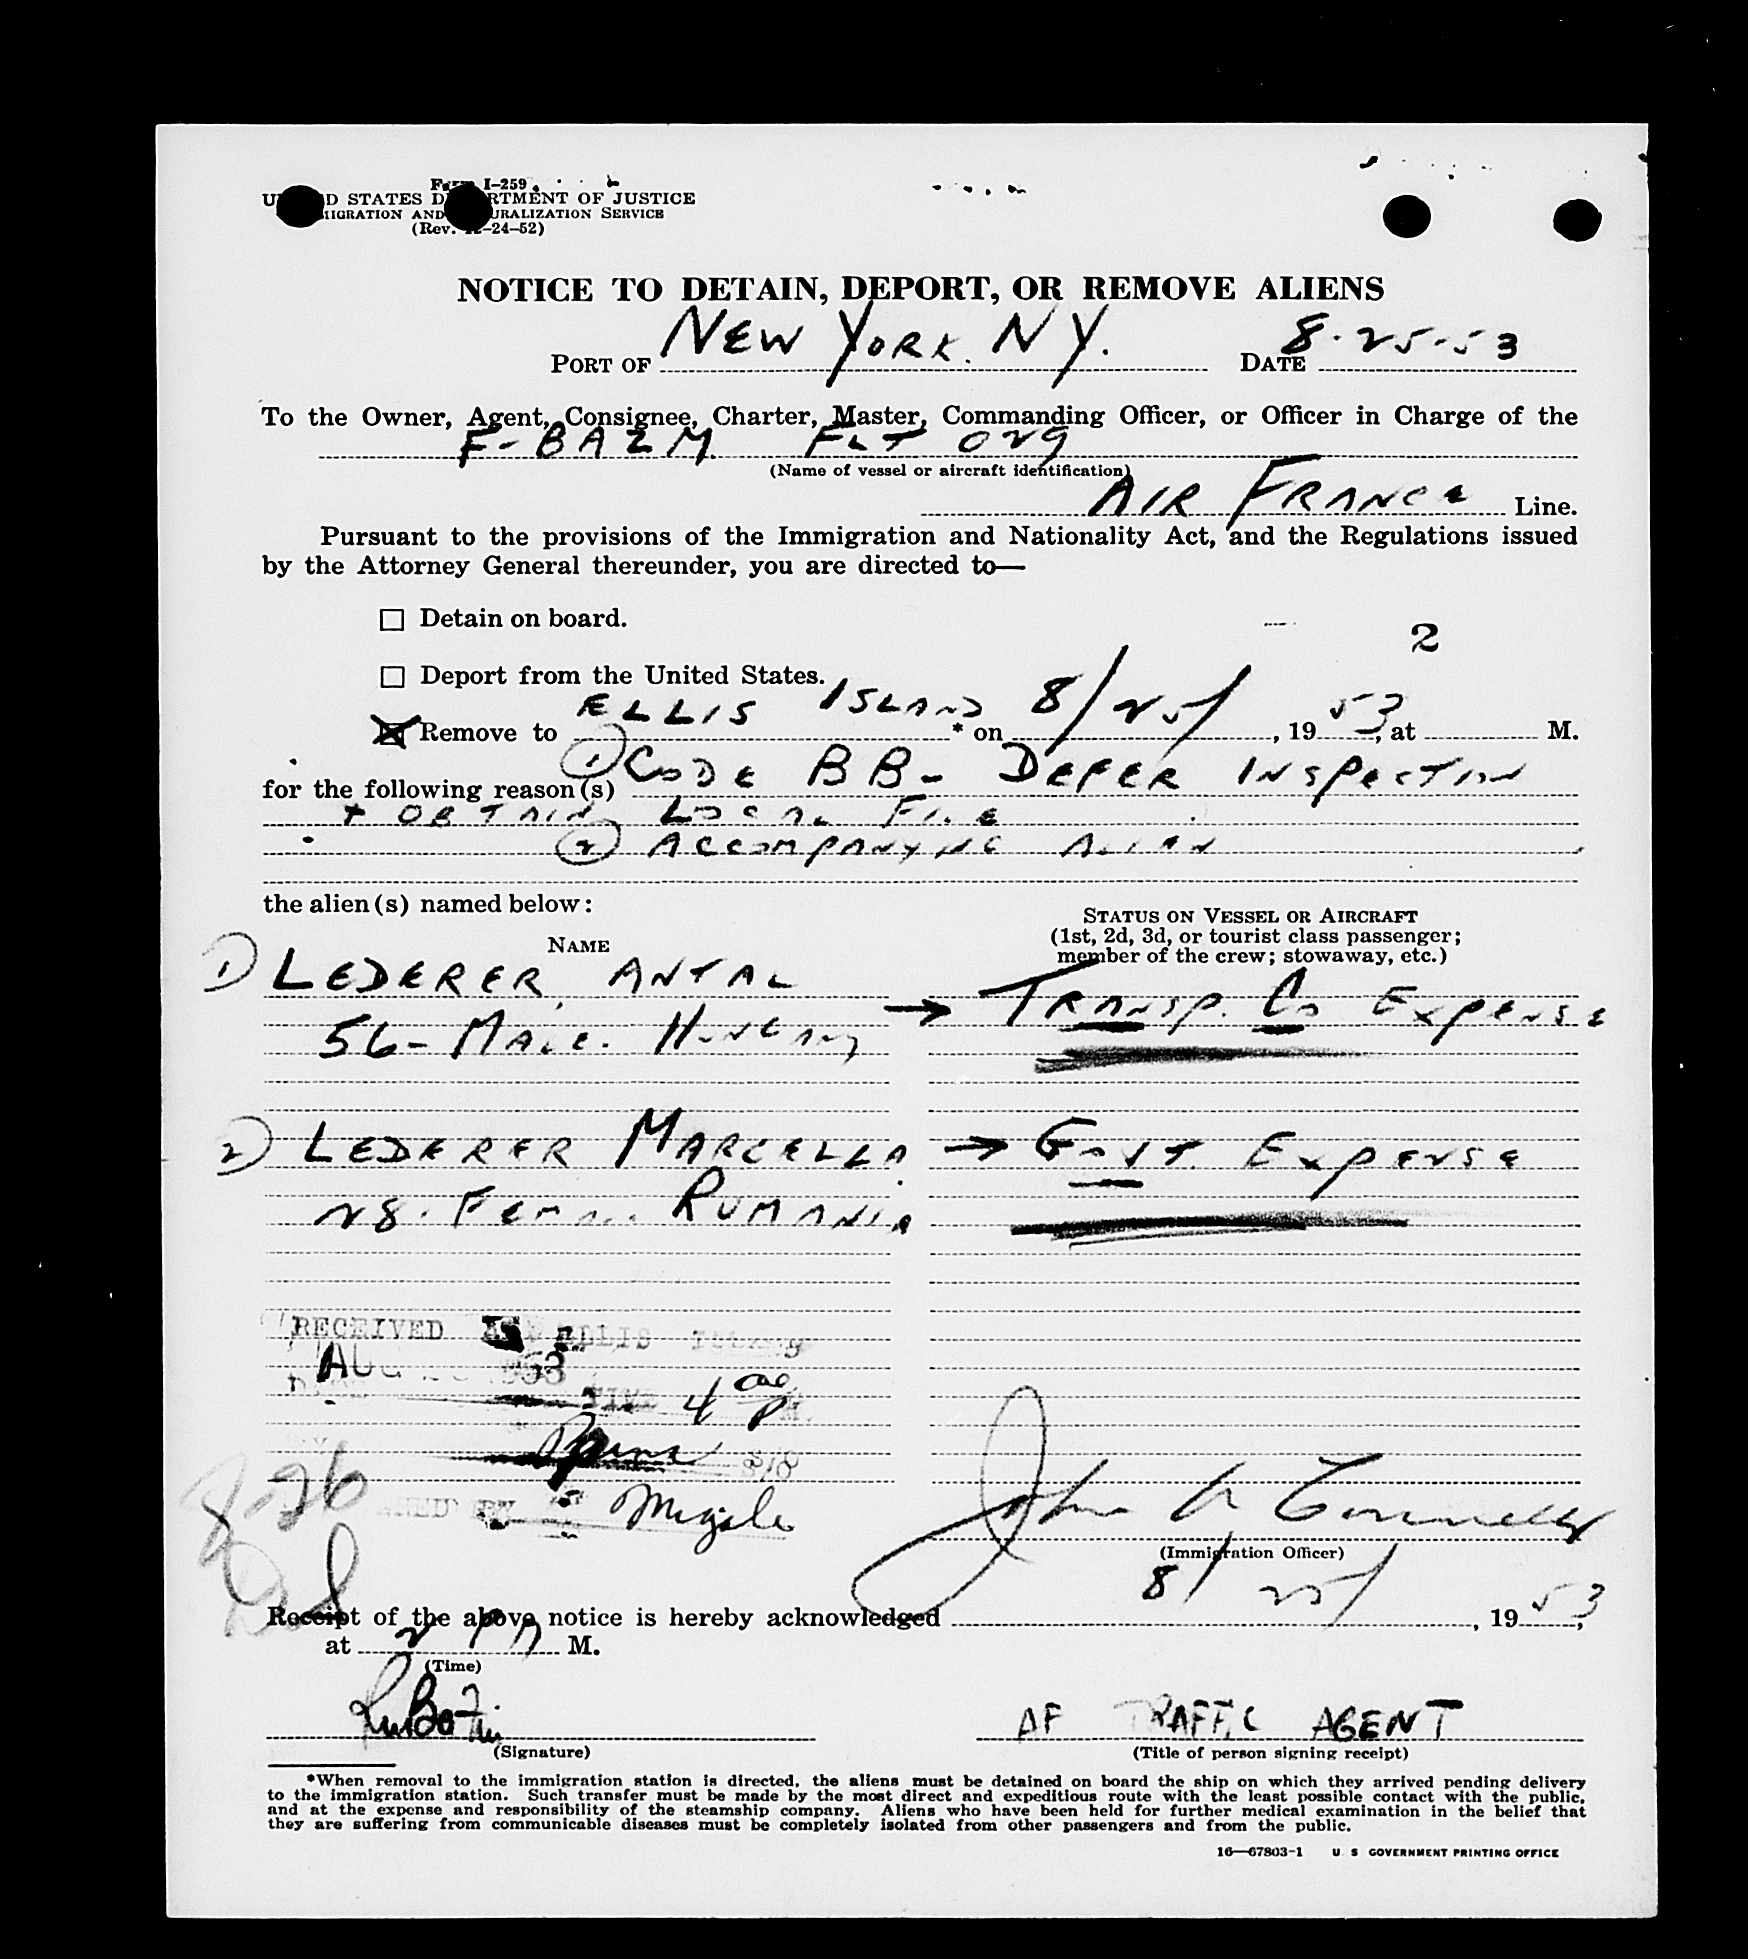 Form I-259
UNITED STATES DEPARTMENT OF JUSTICE
IMMIGRATION AND NATURALIZATION SERVICE
(Rev. 12-24-52)
NOTICE TO DETAIN, DEPORT, OR REMOVE ALIENS
PORT OF NEW YORK. NY. DATE 8-25-53
To the Owner, Agent, Consignee, Charter, Master, Commanding Officer, or Officer in Charge of the
F-BAZM FLT 029
(Name of vessel or aircraft identification)
AIR FRANCE Line.
Pursuant to the provisions of the Immigration and Nationality Act, and the Regulations issued
by the Attorney General thereunder, you are directed to—
☐ Detain on board.
2
☐ Deport from the United States.
☒ Remove to ELLIS ISLAND * on 8/25/, 1953, at M.
for the following reason(s) 1) CODE BB- DEFER INSPECTION
+ OBTAIN LOCAL FILE
2) ACCOMPANYING ALIEN
the alien(s) named below:
NAME
STATUS ON VESSEL OR AIRCRAFT
(1st, 2d, 3d, or tourist class passenger;
member of the crew; stowaway, etc.)
1) LEDERER, ANTAL → TRANSP. Co EXPENSE
56- MALE. HUNGARY
2) LEDERER MARCELLA → GOVT. EXPENSE
28. FEMALE. RUMANIA
RECEIVED AT ELLIS ISLAND
AUG 1953
TIME 4
8-26
John A Connelly
(Immigration Officer)
Receipt of the above notice is hereby acknowledged 8/25/, 1953,
at 2 PM M.
(Time)
AF TRAFFIC AGENT
(Signature) (Title of person signing receipt)
*When removal to the immigration station is directed, the aliens must be detained on board the ship on which they arrived pending delivery
to the immigration station. Such transfer must be made by the most direct and expeditious route with the least possible contact with the public,
and at the expense and responsibility of the steamship company. Aliens who have been held for further medical examination in the belief that
they are suffering from communicable diseases must be completely isolated from other passengers and from the public.
16—67803-1 U S GOVERNMENT PRINTING OFFICE